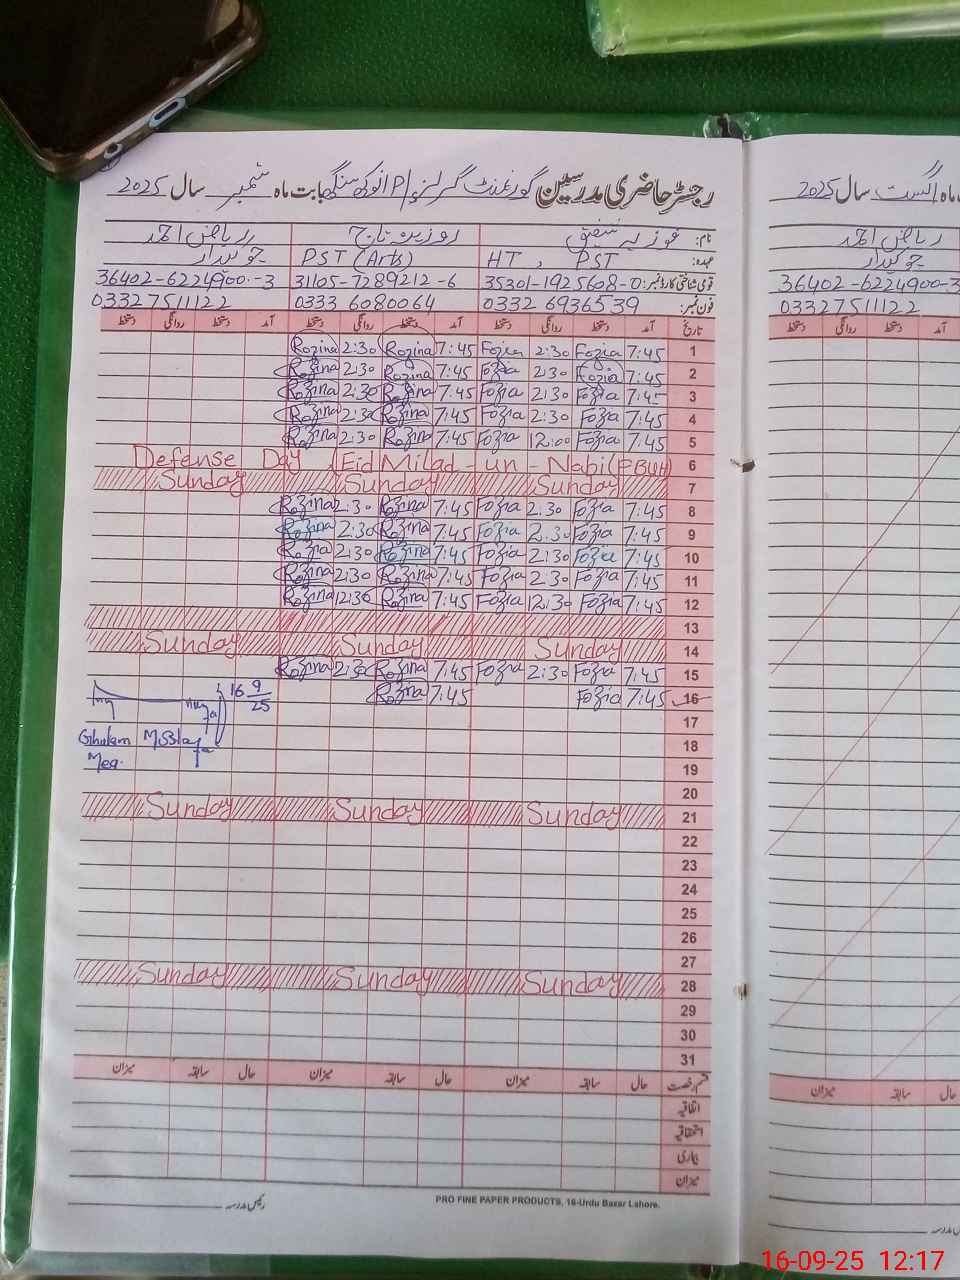 رجسٹر حاضری مدرسین گورنمنٹ گرلز P/S انوکھ سنگھ بابت ماہ ستمبر سال 2025
نام: فوزیہ شفیق روزینہ تاج ریاض احمد
عہدہ: HT, PST PST (Arts) چوکیدار
قومی شناختی کارڈ نمبر: 35301-1925608-0 31105-7289212-6 36402-6224900-3
فون نمبر: 0332 6936539 0333 6080064 03327511122
تاریخ آمد دستخط روانگی دستخط آمد دستخط روانگی دستخط آمد دستخط روانگی دستخط
1 7:45 Fozia 2:30 Fozia 7:45 Rozina 2:30 Rozina
2 7:45 Fozia 2:30 Fozia 7:45 Rozina 2:30 Rozina
3 7:45 Fozia 2:30 Fozia 7:45 Rozina 2:30 Rozina
4 7:45 Fozia 2:30 Fozia 7:45 Rozina 2:30 Rozina
5 7:45 Fozia 12:00 Fozia 7:45 Rozina 2:30 Rozina
Defense Day, Eid Milad-un-Nabi (PBUH) 6
Sunday Sunday Sunday 7
8 7:45 Fozia 2:30 Fozia 7:45 Rozina 2:30 Rozina
9 7:45 Fozia 2:30 Fozia 7:45 Rozina 2:30 Rozina
10 7:45 Fozia 2:30 Fozia 7:45 Rozina 2:30 Rozina
11 7:45 Fozia 2:30 Fozia 7:45 Rozina 2:30 Rozina
12 7:45 Fozia 12:30 Fozia 7:45 Rozina 12:30 Rozina
13
Sunday Sunday Sunday 14
15 7:45 Fozia 2:30 Fozia 7:45 Rozina 2:30 Rozina
16 7:45 Fozia 7:45 Rozina
16 9/25
17
Ghulam
18
Mea.
19
20
Sunday Sunday Sunday 21
22
23
24
25
26
27
Sunday Sunday Sunday 28
29
30
31
قسم رخصت حال سابقہ میزان حال سابقہ میزان حال سابقہ میزان
اتفاقیہ
استحقاقیہ
بیماری
میزان
رئیس مدرسہ
PRO FINE PAPER PRODUCTS, 16-Urdu Bazar Lahore.
ماہ اگست سال 2025
ریاض احمد
چوکیدار
36402-6224900-3
03327511122
آمد دستخط روانگی دستخط
حال سابقہ میزان
رئیس مدرسہ
16-09-25 12:17